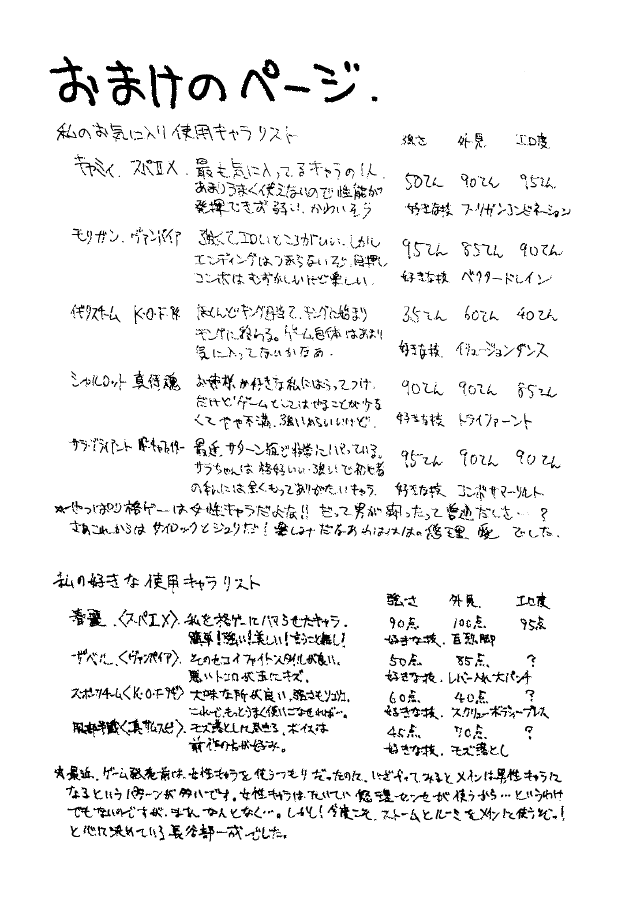 おまけのページ.
私のお気に入り使用キャラリスト 強さ 外見 エロ度
キャミィ. スパⅡX. 最も気に入ってるキャラの1人
あまりうまく使えないので性能が
発揮できず弱い. かわいそう
50てん 90てん 95てん
好きな技 フーリガンコンビネーション
モリガン. ヴァンパイア 強くてエロいところがいい. しかし
エンディングはつまらないぞ. 目押し
コンボはむずかしいけど楽しい.
95てん 85てん 90てん
好きな技 ベクタードレイン
イギリスチーム K・O・F
ほとんどキング目当て. キングに始まり
キングに終わる。ゲーム自体はあまり
気に入ってないかなあ.
35てん 60てん 40てん
好きな技. イリュージョンダンス
シャルロット 真侍魂 お姫様が好きな私にはうってつけ.
だけどゲームとしてはやることが少な
くてやや不満. 強いからいいけど.
90てん 90てん 85てん
好きな技 トライファーント
サラ・ブライアント 最近. サターン版で非常にハマっている。
サラちゃんは格好いい・強いで初心者
の私には全くもってありがたいキャラ.
95てん 90てん 90てん
好きな技 コンボサマーソルト
☆やっぱり格ゲーは女性キャラだよな!! だって男が闘ったって普通だしさ…?
さあこれからはサイロックとジュリだ! 楽しみだなあわははは の 悠理 愛 でした.
私の好きな使用キャラリスト 強さ 外見. エロ度
春麗.〈スパⅡX〉. 私を格ゲーにハマらせたキャラ.
簡単! 強い! 美しい! 言うこと無し!
90点 100点 95点
好きな技. 百烈脚
ザベル.〈ヴァンパイア〉. そのセコイファイトスタイルが良い.
悪いトコロが玉にキズ.
50点 85点. ?
好きな技. レバー入れ大パンチ
スポーツチーム〈K・O・F〉 大味な所が良い. 強さもソコソコ.
これで. もっとうまく使いこなせれば….
60点 40点 ?
好きな技. スクリューボディープレス
服部半蔵〈真サムスピ〉. モズ落としに尽きる. ボイスは
前作の方が好み.
45点 70点. ?
好きな技. モズ落とし
☆最近. ゲーム発売前は女性キャラを使うつもりだったのに. いざやってみるとメインは男性キャラに
なるというパターンが多いです。女性キャラはたいてい悠理センセが使うから…というわけ
でもないのですが. まあ. なんとなく…。しかし! 今度こそ. ストームとルーミをメインに使うぞっ!
と心に決めている長谷部一成でした。